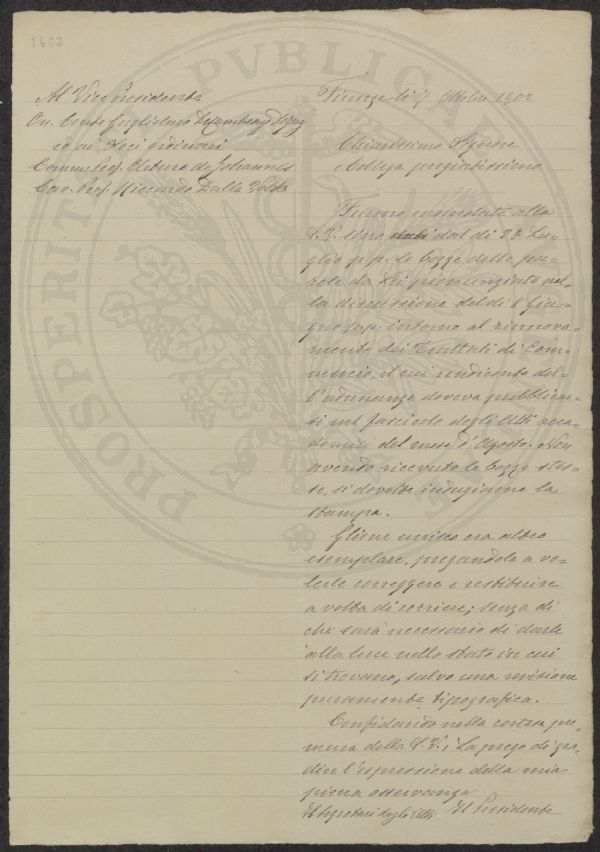 1463
Al Vice Presidente
On. Conte Guglielmo De Cambray Digny
ed ai Soci ordinari
Comm. Prof. Arturo de Johannis
Cav. Prof. Riccardo Dalla Volta
Firenze li 7 Ottobre 1902
Chiarissimo Signore
e Collega pregiatissimo
Furono mandate alla
S. V. sino dal dì 23 Lu-
glio p. p. le bozze delle pa-
role da Lei pronunziate nel-
la discussione del dì 8 Giu-
gno intorno al rinnova-
mento dei Trattati di Com-
mercio, il cui rendiconto del-
l'adunanza doveva pubblicar-
si nel fascicolo degli Atti acca-
demici del mese d'Agosto. Non
avendo ricevuto le bozze stes-
se, si dovette indugiare la
stampa.
Gliene unisco ora altro
esemplare, pregandola a vo-
lerle correggere e restituire
a volta di corriere; senza di
che sarà necessario di darle
alla luce nello stato in cui
si trovano, salvo una revisione
puramente tipografica.
Confidando nella cortese pre-
mura della S. V., La prego di gra-
dire l'espressione della mia
piena osservanza
Il Segretari degli Atti Il Presidente
PROSPERITATI PVBLICAE